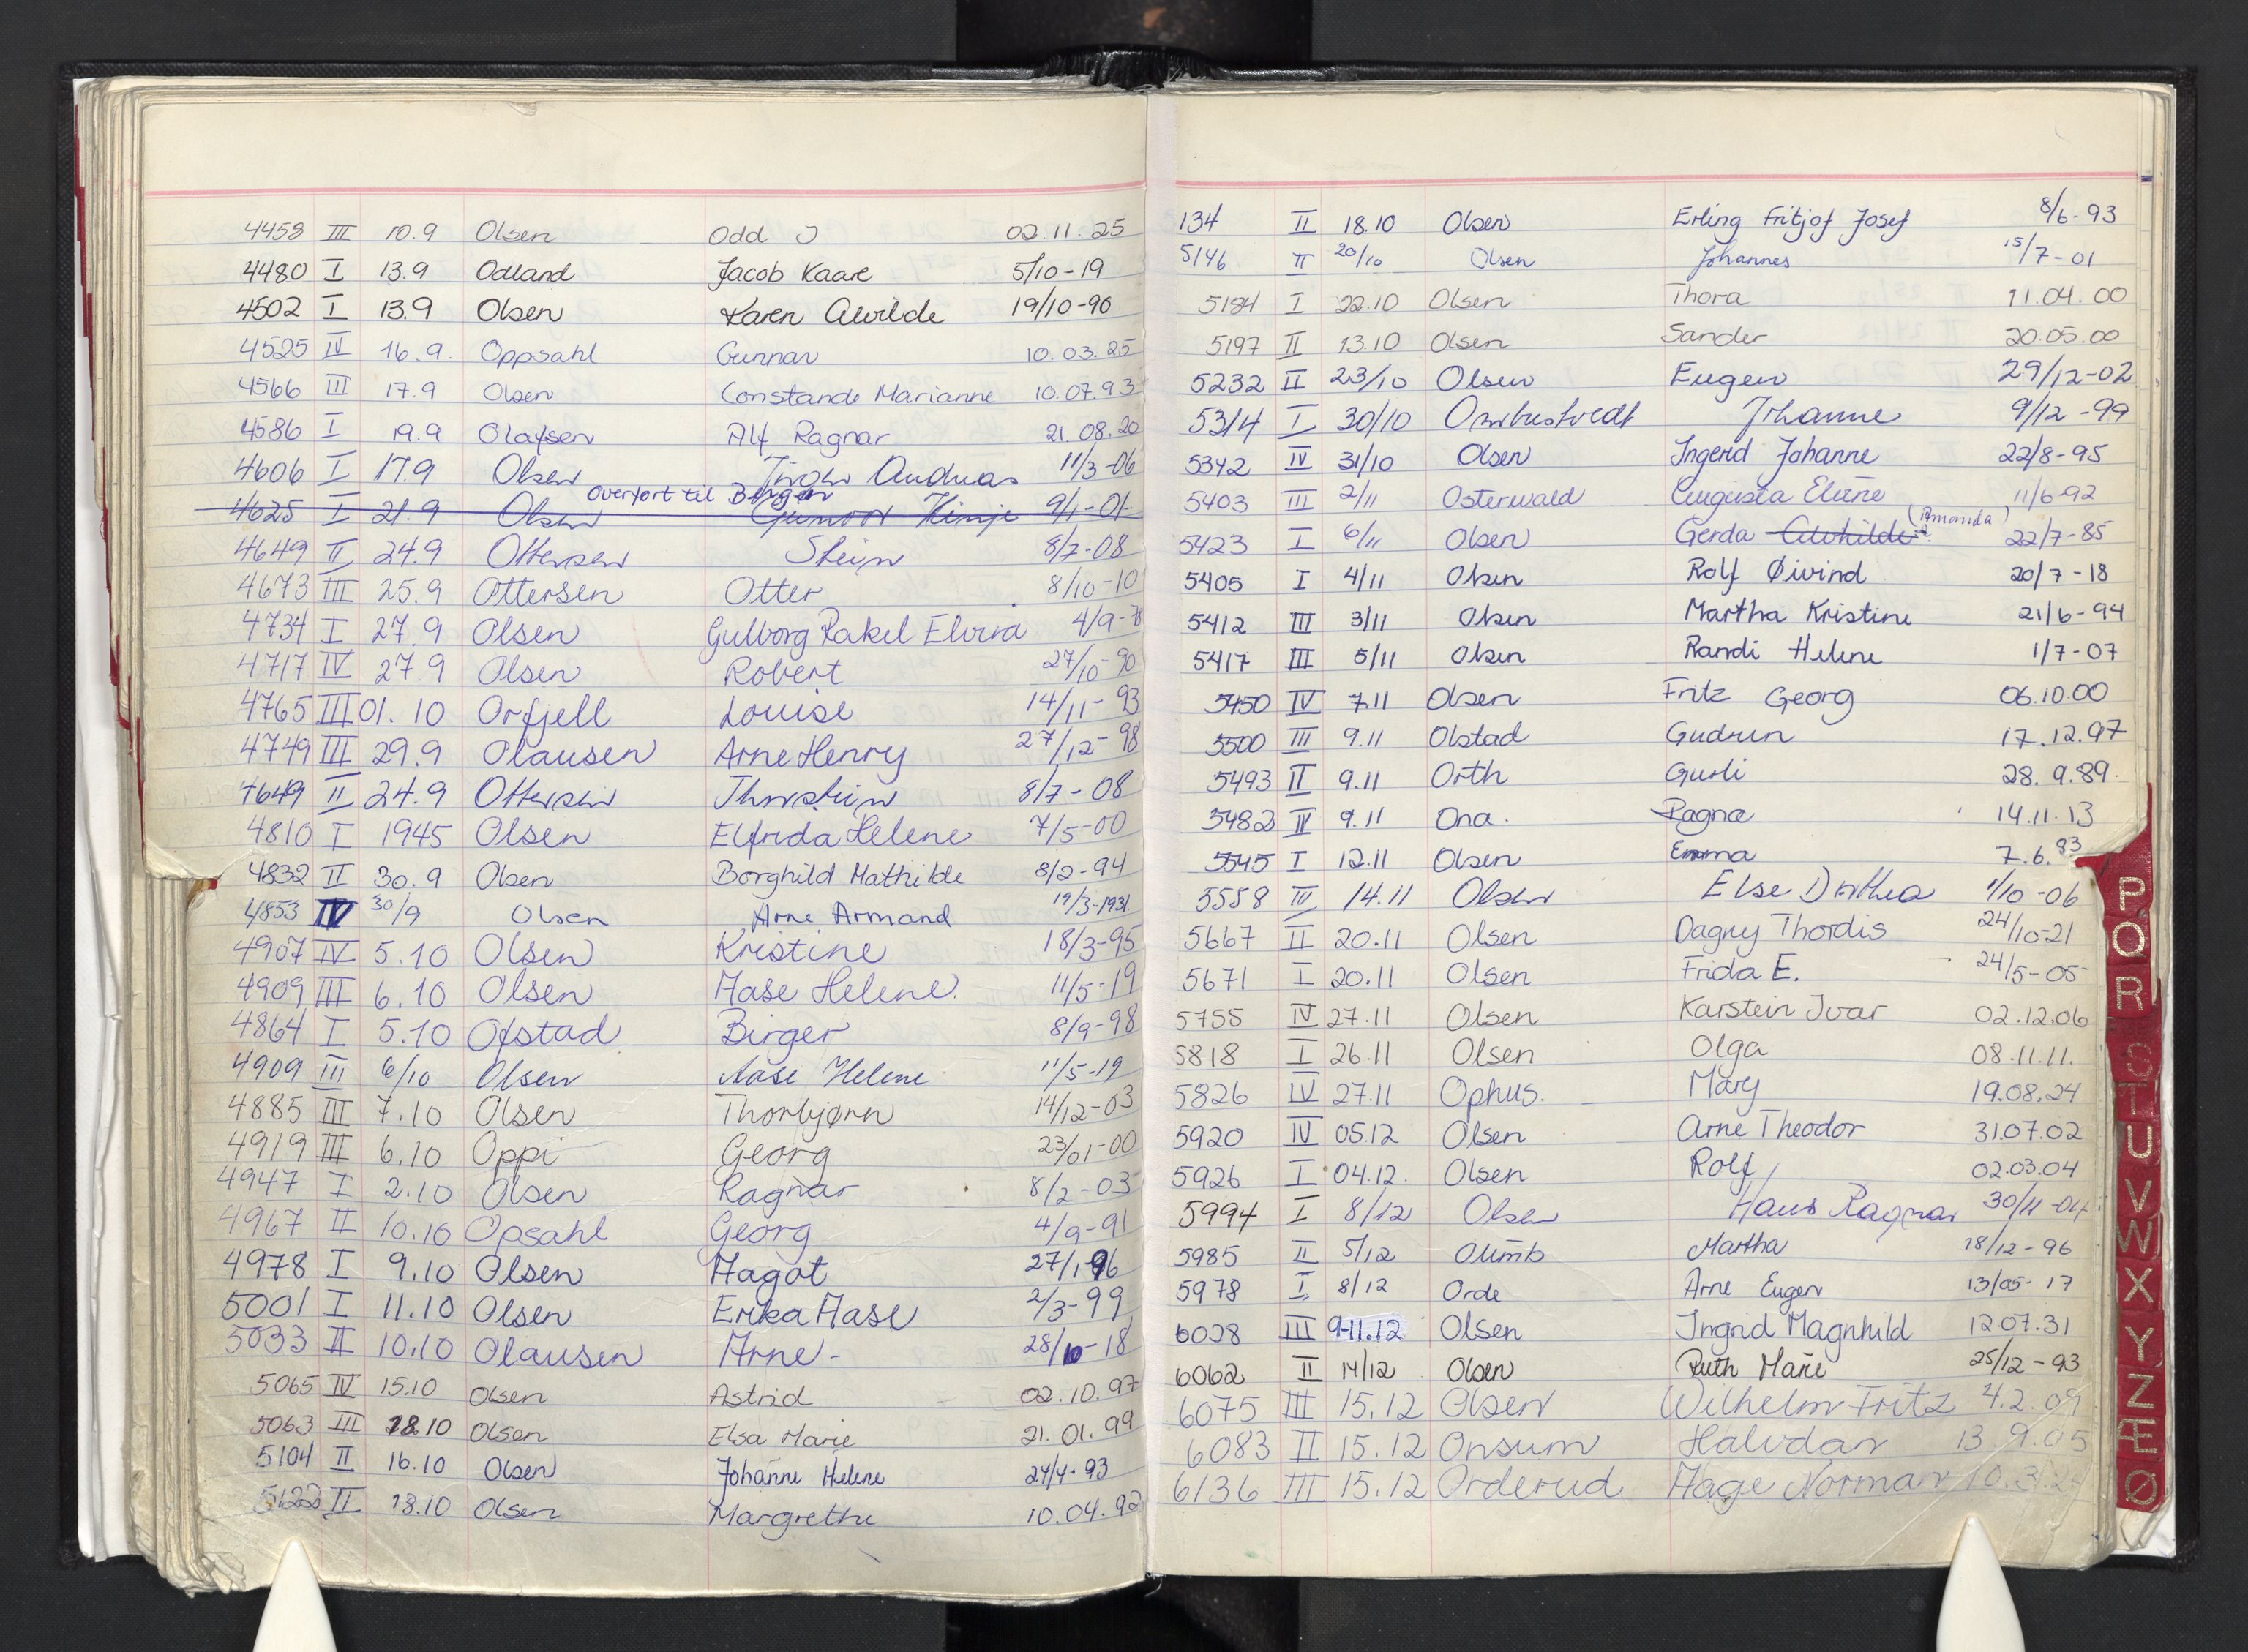 4458 III 10.9 Olsen Odd J 02.11.25
4480 I 13.9 Odland Jacob Kaare 5/10-19
4502 I 13.9 Olsen Karen Alvilde 19/10-90
4525 IV 16.9. Oppsahl Gunnar 10.03.25
4566 III 17.9 Olsen Constande Marianne 10.07.93
4586 I 19.9 Olafsen Alf Ragnar 21.08.20
4606 I 17.9 Olsen Andreas 11/3-06
overført til Bergen
4625 I 21.9 Olsen 9/1-01
4649 II 24.9 Ottersen Stein 8/7-08
4673 III 25.9 Ottersen Otter 8/10-10
4734 I 27.9 Olsen Gulborg Rakel Elvira 4/9-
4717 IV 27.9 Olsen Robert 27/10-90
4765 III 01.10 Orfjell Louise 14/11-93
4749 III 29.9 Olausen Arne Henry 27/12-98
4649 II 24.9 Ottersen Thorstein 8/7-08
4810 I 1945 Olsen Elfrida Helene 7/5-00
4832 II 30.9 Olsen Borghild Mathilde 8/2-94
4853 IV 30/9 Olsen Arne Armand 19/3-1931
4907 IV 5.10 Olsen Kristine 18/3-95
4909 III 6.10 Olsen Aase Helene. 11/5-19
4864 I 5.10 Ofstad Birger 8/9-98
4909 III 6/10 Olsen Aase Helene 11/5-19
4885 III 7.10 Olsen Thorbjørn 14/12-03
4919 III 6.10 Oppi Georg 23/01-00
4947 I 2.10 Olsen Ragnar 8/2-03
4967 II 10.10 Opsahl Georg 4/9-91
4978 I 9.10 Olsen Aagot 27/1-96
5001 I 11.10 Olsen Erika Aase 2/3-99
5033 II 10.10 Olausen Arne- 28/10-18
5065 IV 15.10 Olsen Astrid 02.10.97
5063 III 18.10 Olsen Elsa Marie 21.01.99
5104 II 16.10 Olsen Johanne Helene 24/4-93
5122 II 18.10 Olsen Margrethe 10.04.92
134 II 18.10 Olsen Erling Fritjof Josef 8/6-93
5146 II 20/10 Olsen Johannes 15/7-01
5184 I 22.10 Olsen Thora 11.04.00
5197 II 13.10 Olsen Sander 20.05.00
5232 II 23/10 Olsen Eugen 29/12-02
5314 I 30/10 Johanne 9/12-99
5342 IV 31/10 Olsen Ingerid Johanne 22/8-95
5403 III 2/11 Osterwald Augusta Eline 11/6-92
5423 I 6/11 Olsen Gerda Alvhilde (Amanda) 22/7-85
5405 I 4/11 Olsen Rolf Øivind 20/7-18
5412 III 3/11 Olsen Martha Kristine 21/6-94
5417 III 5/11 Olsen Randi Helene 1/7-07
5450 IV 7.11 Olsen Fritz Georg 06.10.00
5500 III 9.11 Olstad Gudrun 17.12.97
5493 II 9.11 Orth Gurli 28.9.89.
5482 IV 9.11 Ona. Ragna 14.11.13
5545 I 12.11 Olsen Emma 7.6.83
5558 IV 14.11 Olsen Else Dorthea 1/10-06
5667 II 20.11 Olsen Dagny Thordis 24/10-21
5671 I 20.11 Olsen Frida E. 24/5-05
5755 IV 27.11 Olsen Karstein Ivar 02.12.06
5818 I 26.11 Olsen Olga 08.11.11.
5826 IV 27.11 Ophus. Mary 19.08.24
5920 IV 05.12 Olsen Arne Theodor 31.07.02
5926 I 04.12. Olsen Rolf 02.03.04
5994 I 8/12 Olsen Hans Ragnar 30/11-04
5985 II 5/12 Olimb Martha 18/12-96
5978 I 8/12 Orde Arne Eugen 13/05-17
6028 III 9-11.12 Olsen Ingrid Magnhild 12.07.31
6062 II 14/12 Olsen Ruth Marie 25/12-93
6075 III 15.12 Olsen Wilhelm Fritz 4.2.09
6083 II 15.12 Onsum Halvdan 13.9.05
6136 III 15.12 Orderud Aage Norman 10.3.
P
Q
R
S
T
U
V
W
X
Y
Z
Æ
Ø